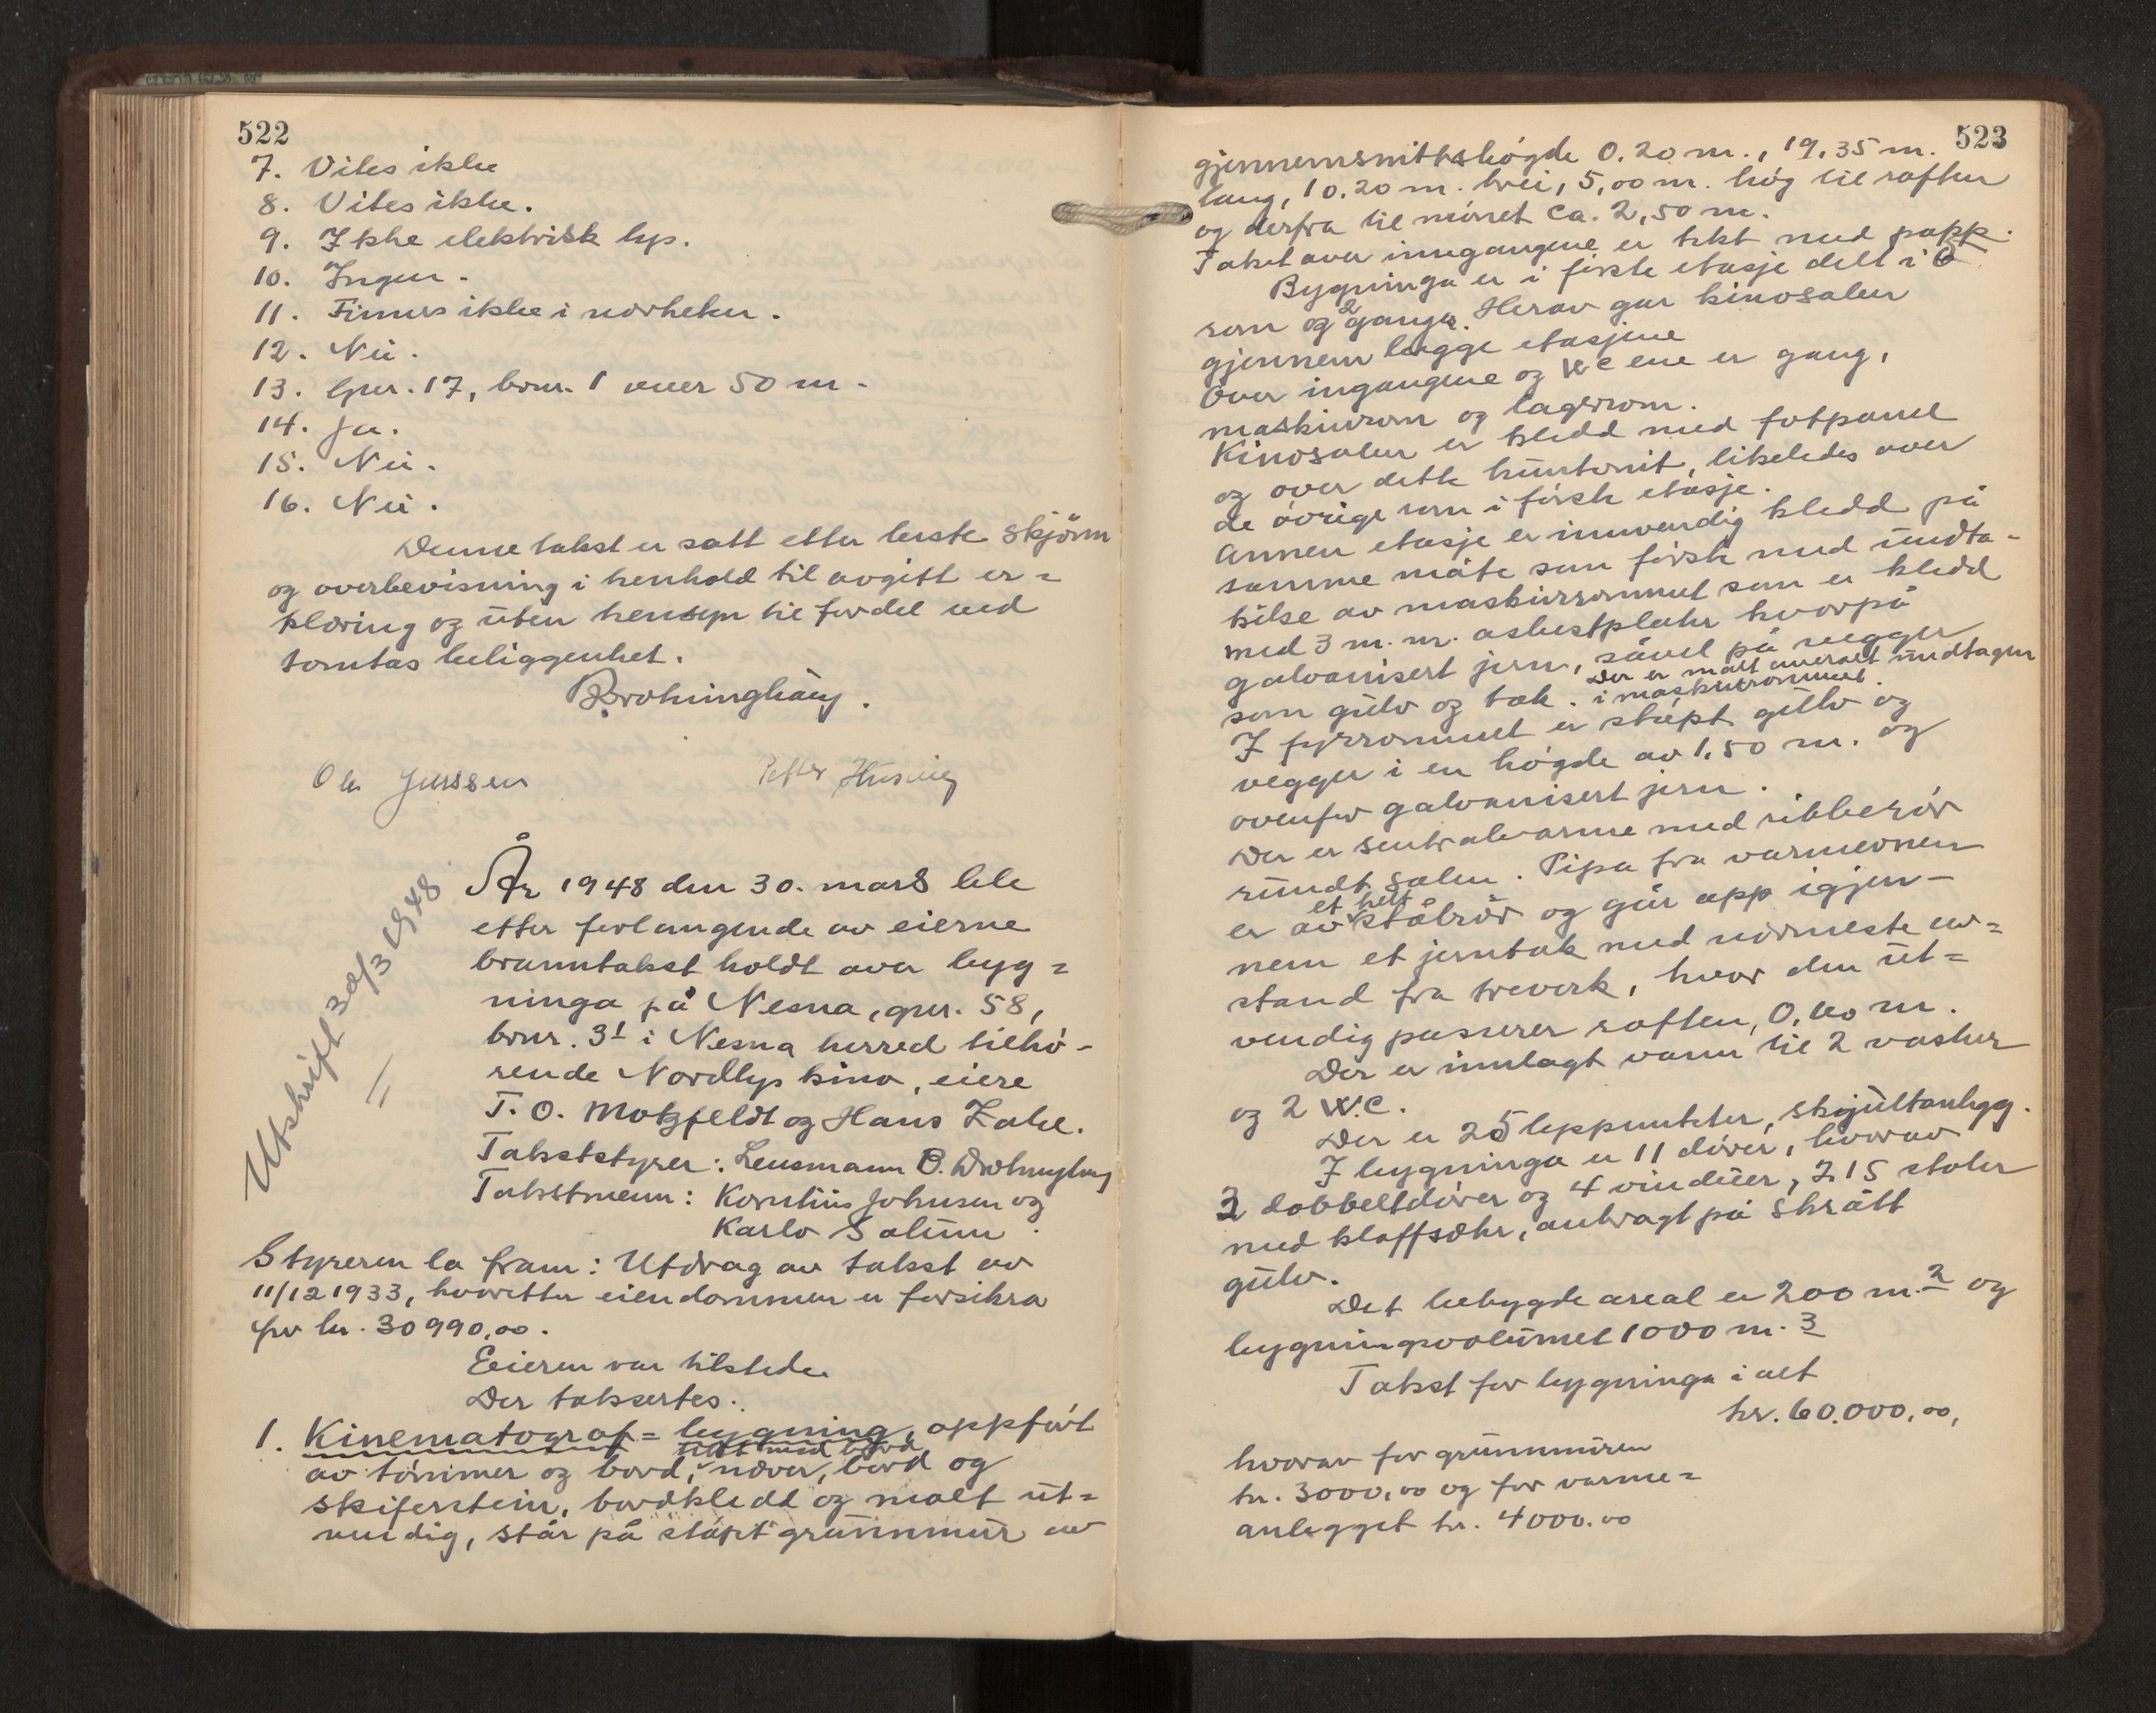 522
7. Vites ikke
8. Vites ikke.
9. Ikke elektrisk lys.
10. Ingen.
11. Finnes ikke i nærheten.
12. Nei.
13. Gnr. 17, bnr. 1 over 50 m.
14. Ja.
15. Nei.
16. Nei.
Denne takst er satt etter beste skjønn
og overbevisning i henhold til avgitt er=
klæring og uten hensyn til fordel ved
tomtas beliggenhet.
Ole Jenssen Petter Husvig
Utskrift 30/3 1948
År 1948 den 30. mars ble
etter forlangende av eierne
branntakst holdt over byg=
ninga på Nesna, gnr. 58,
bnr. 31 i Nesna herred tilhø-
rende Nordlys kino, eiere
T. O. Motzfeldt og Hans Zahl.
Takststyrer: Lensmann B.
Takstmenn: Kornelius Johnsen og
Karlo Salum.
Styreren la fram: Utdrag av takst av
11/12 1933, hvoretter eiendommen er forsikra
for kr. 30990,00.
Eieren var tilstede.
Der taksertes:
1. Kinematograf=bygning, oppført
tekt med bord,
av tømmer og bord, never, bord og
skiferstein, bordkledt og malt ut=
vendig, står på støpt grunnmur av
523
gjennemsnittshøgde 0.20 m., 19,35 m.
lang, 10.20 m. brei, 5,00 m. høg til raften
og derfra til mønet ca. 2,50 m.
Taket over inngangene er tekt med papp.
Bygninga er i første etasje delt i 6
rom og 2 ganger. Herav går kinosalen
gjennem begge etasjene
Over ingangene og WC ene er gang,
maskinrom og lagerrom.
Kinosalen er kledd med fotpanel
og over dette huntonit, likeledes over
de øvrige rom i første etasje.
Annen etasje er innvendig kledd på
samme måte som første med undta-
kelse av maskinrommet som er kledd
med 3 m.m. asbestplater hvorpå
galvanisert jern, såvel på vegger
Der er malt overalt undtagen
som gulv og tak. i maskinrommet.
I fyrrommet er støpt gulv og
vegger i en høgde av 1,50 m. og
ovenfor galvanisert jern.
Der er sentralvarme med ribberør
rundt salen. Pipa fra varmeovnen
et helt
er av stålrør og går opp igjen-
nem et jerntak med nærmeste av=
stand fra trevirk, hvor den ut=
vendig passerer raften, 0,60 m.
Der er innlagt vann til 2 vasker
og 2 W.C.
Der er 25 lyspunkter, skjultanlegg.
I bygninga er 11 dører, hvorav
3 dobbeltdører og 4 vinduer, 215 stoler
med klaffsæter, anbragt på skrått
gulv.
Det bebygde areal er 200 m.2 og
bygningsvolumet 1000 m.3
Takst for bygninga i alt
kr. 60.000,00,
hvorav for grunnmuren
kr. 3000,00 og for varme=
anlegget kr. 4000.00